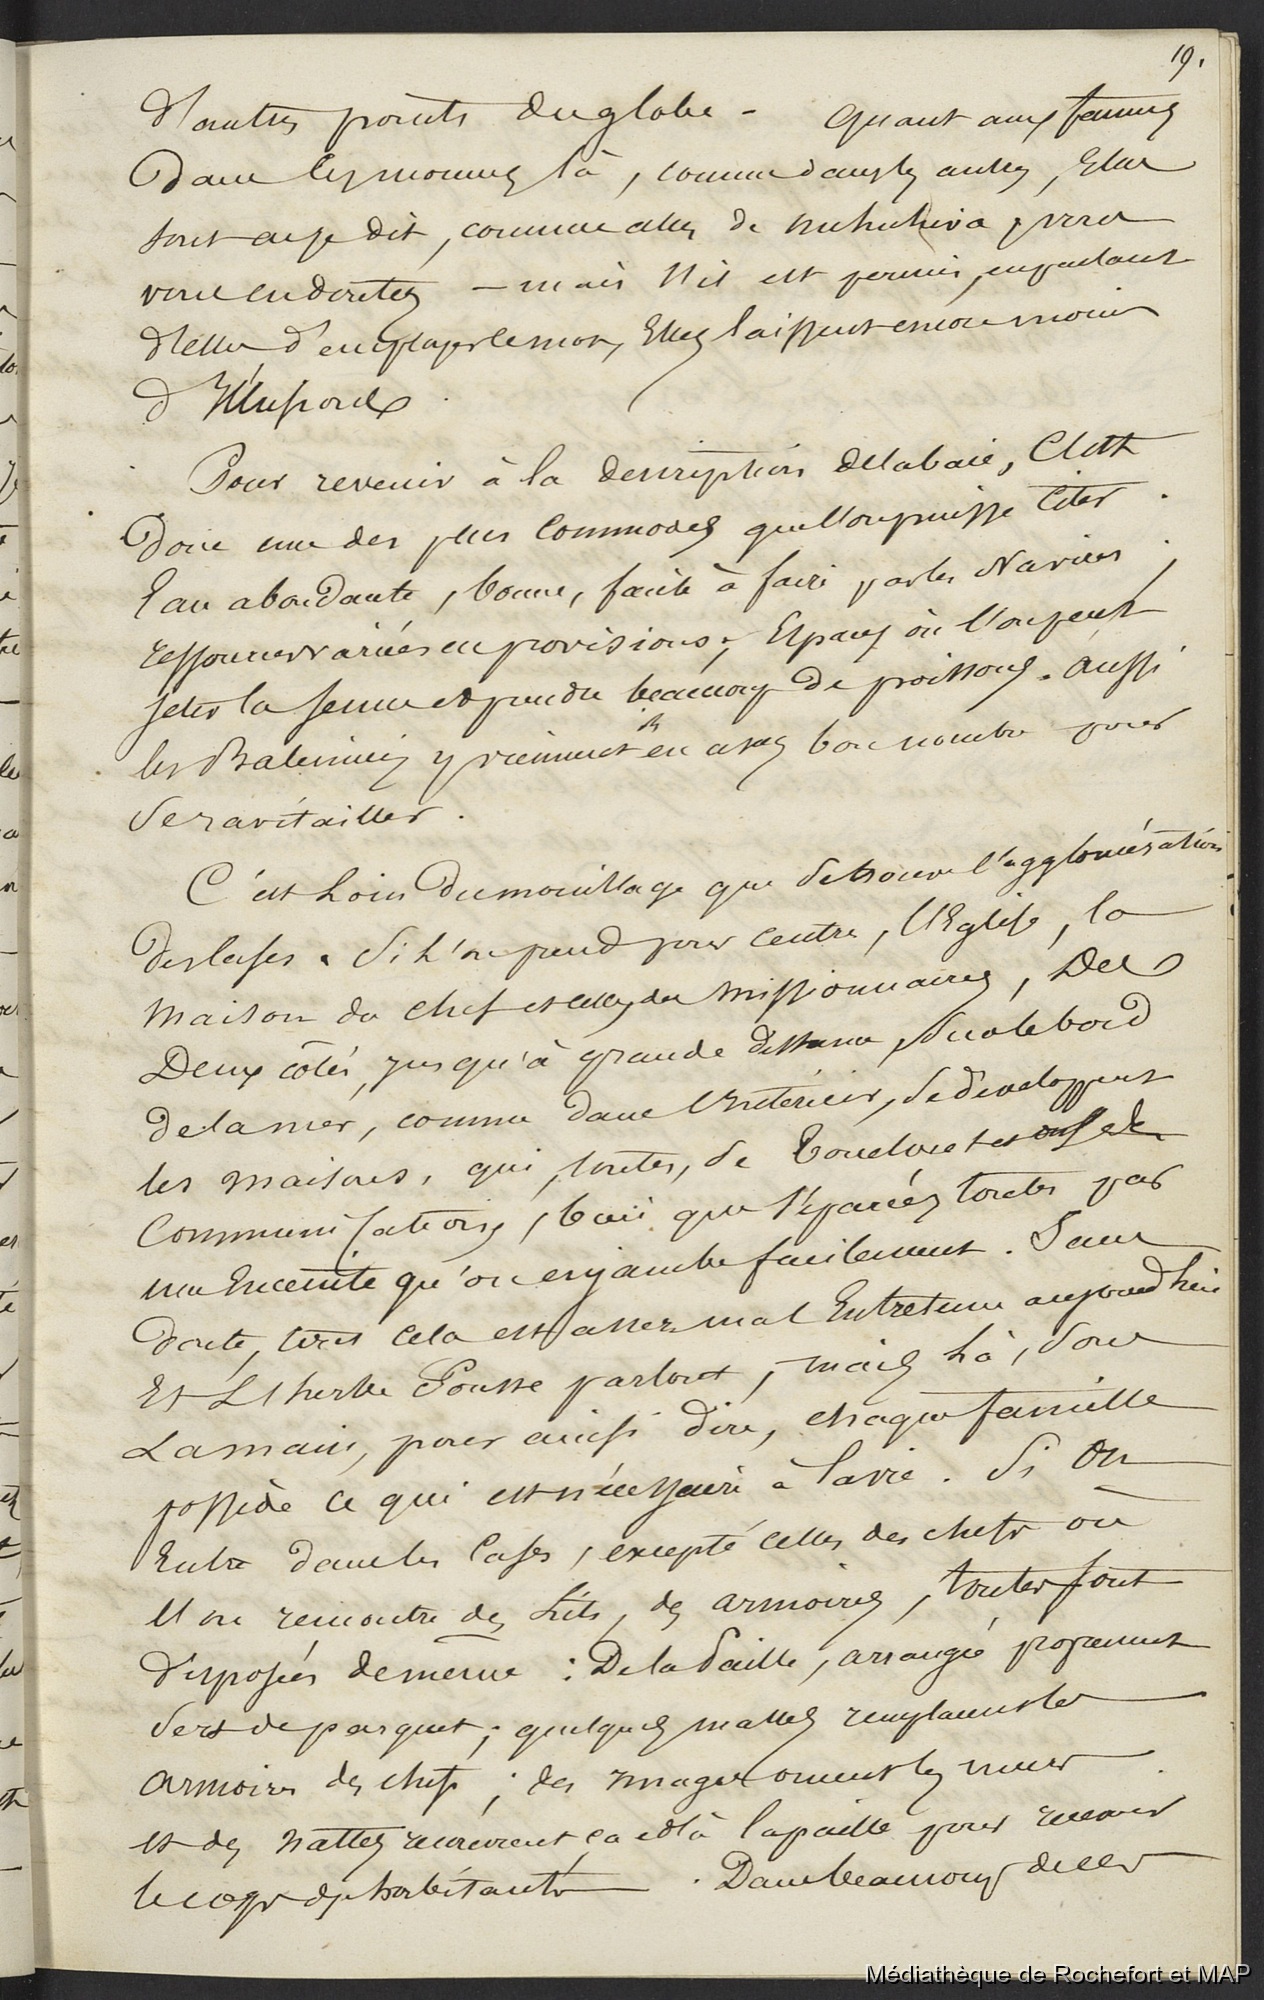 19.
d'autres points du globe - Quant aux femmes
Dans les moeurs là, comme dans les autres, Elles
sont ai je dit, comme celles de nukuhiva; vous
vous en doutez - mais s'il est permis, en parlant
d'elles d'employer le mot, Elles laissent encore moins
d'
Pour revenir à la description de la baie, C'est
Donc une des plus Commodes que l'on puisse Citer.
Eau abondante, bonne, facile à faire par les Navires;
ressources variées en provisions; Espaces où l'on peut
jeter la senne et prendre beaucoup de poissons. aussi
les Baleiniers y viennent en assez bon nombre pour
se ravitailler.
C'est loin du mouillage que se trouve l'agglomération
des Cases. Si l'on prend pour centre, l'Eglise, la
maison du chef et celles des missionnaires, Des
Deux côtés, jusqu'à grande distance, sur le bord
de la mer, comme dans l'Intérieur, se développent
les maisons, qui, toutes, se
Communications, bien que séparées toutes par
une Enceinte qu'on enjambe facilement. Sans
doute, tout cela est assez mal Entretenu aujourd'hui
Et L'herbe Pousse partout, mais là, sous
La main, pour ainsi dire, chaque famille
possède ce qui est nécessaire à la vie. Si On
Entre dans les Cases, excepté celles des chefs où
l'on rencontre des lits, des armoires, toutes sont
disposées de même : De la Paille, arrangée proprement
sert de parquet; quelques malles remplacent les
armoires des chefs; des images ornent les murs
et des nattes recouvrent ça et là la paille pour recevoir
le corps des habitants. Dans beaucoup de ces
Médiathèque de Rochefort et MAP